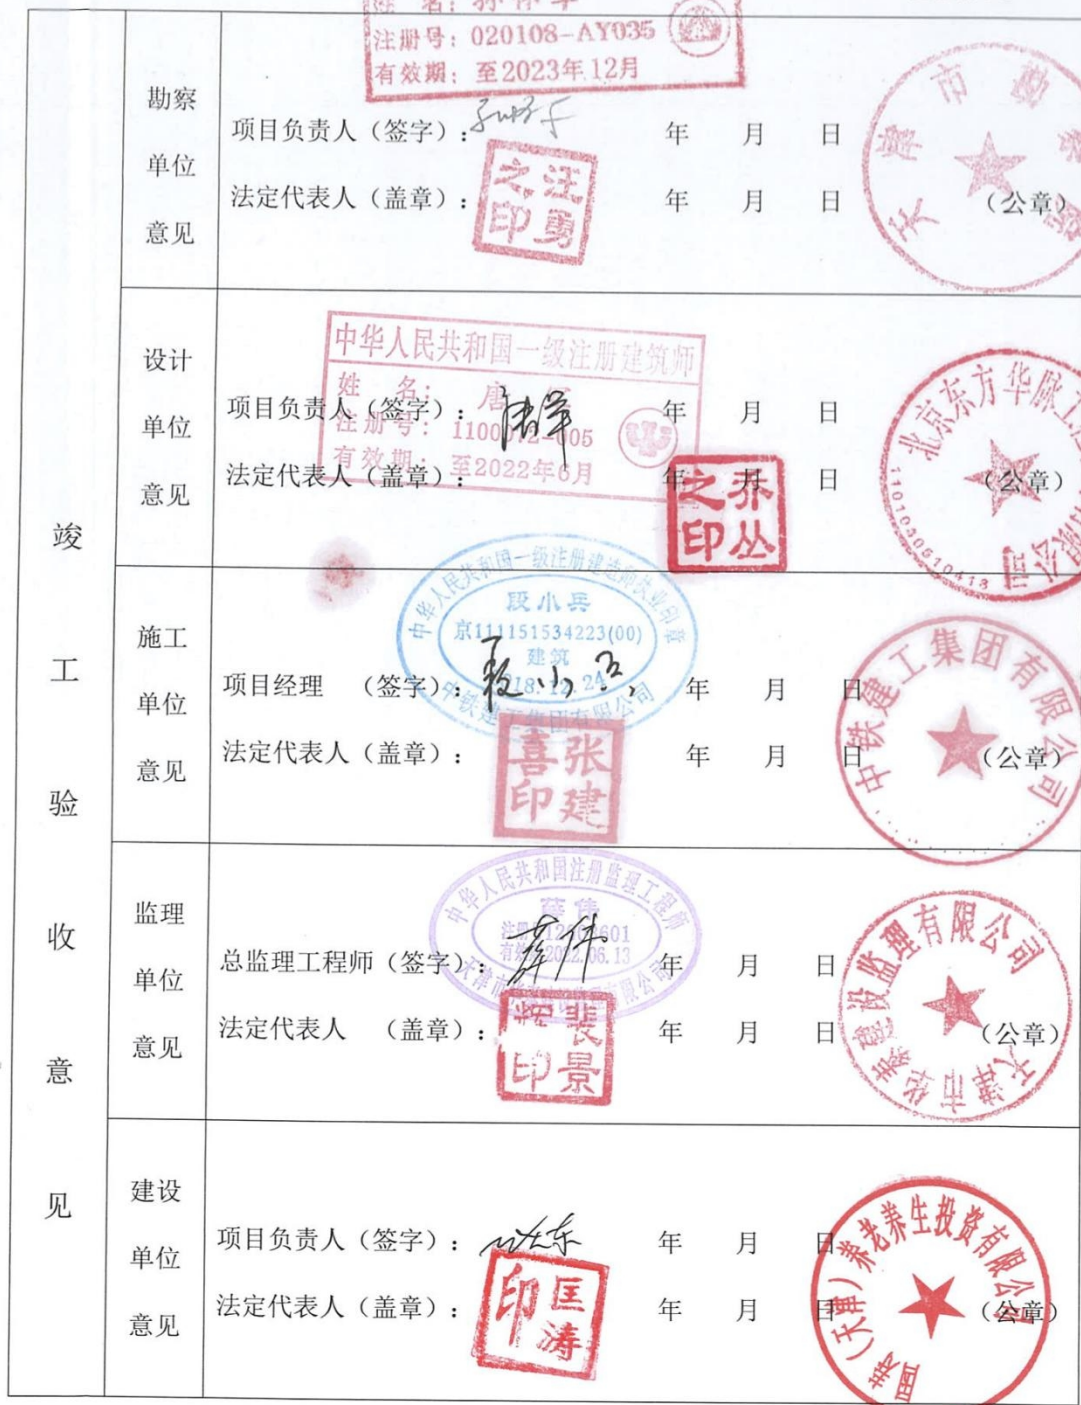 竣工验收意见
注册号：020108-AY035
有效期：至2023年12月
勘察单位意见
项目负责人（签字）： 年 月 日
法定代表人（盖章）： 年 月 日
汪勇之印
（公章）
天津市勘察
设计单位意见
中华人民共和国一级注册建筑师
姓 名：唐
注册号：
有效期：至2022年6月
项目负责人（签字）： 年 月 日
法定代表人（盖章）： 年 月 日
乔丛之印
（公章）
北京东方华脉工
有限公司
1101030510413
施工单位意见
中华人民共和国一级注册建造师执业印章
段小兵
京111151534223(00)
建筑
中铁建工集团有限公司
项目经理 （签字）：段小兵 年 月 日
法定代表人（盖章）： 年 月 日
张建喜印
（公章）
中铁建工集团有限公司
监理单位意见
中华人民共和国注册监理工程师
薛伟
2022.06.13
总监理工程师（签字）：薛伟 年 月 日
法定代表人 （盖章）： 年 月 日
裴景辉印
（公章）
天津市华泰建设监理有限公司
建设单位意见
项目负责人（签字）： 年 月 日
法定代表人（盖章）： 年 月 日
匡涛印
（公章）
（天津）养老养生投资有限公司